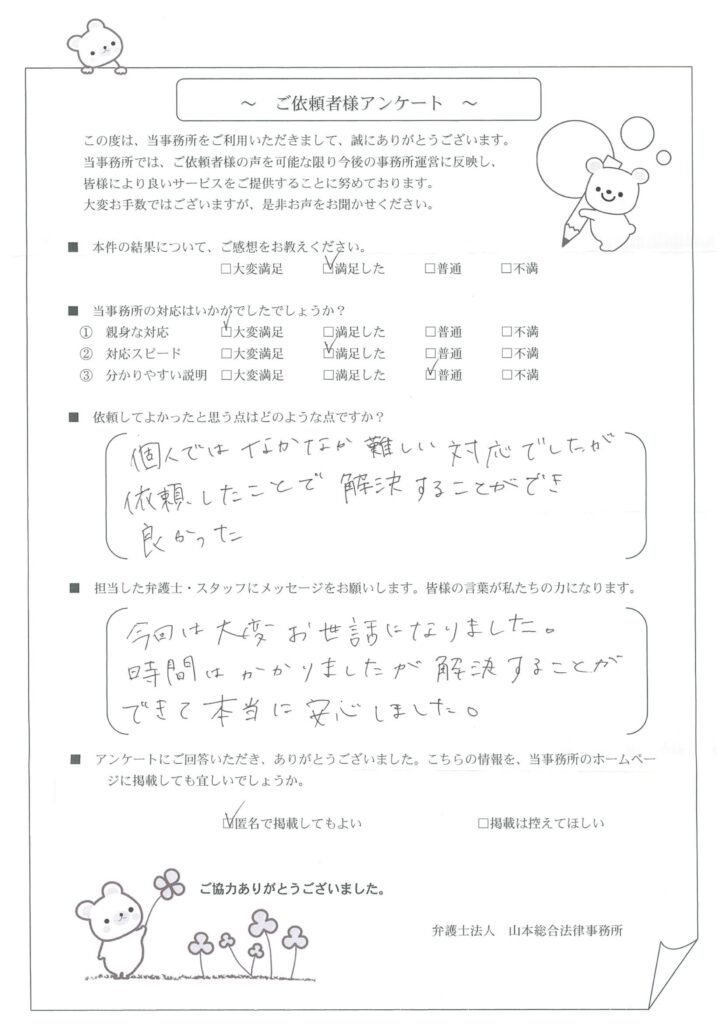 ～ ご依頼者様アンケート ～
この度は、当事務所をご利用いただきまして、誠にありがとうございます。
当事務所では、ご依頼者様の声を可能な限り今後の事務所運営に反映し、
皆様により良いサービスをご提供することに努めております。
大変お手数ではございますが、是非お声をお聞かせください。
■ 本件の結果について、ご感想をお教えください。
□大変満足 ☑満足した □普通 □不満
■ 当事務所の対応はいかがでしたでしょうか？
① 親身な対応 ☑大変満足 □満足した □普通 □不満
② 対応スピード □大変満足 ☑満足した □普通 □不満
③ 分かりやすい説明 □大変満足 □満足した ☑普通 □不満
■ 依頼してよかったと思う点はどのような点ですか？
個人ではなかなか難しい対応でしたが
依頼したことで解決することができ
良かった
■ 担当した弁護士・スタッフにメッセージをお願いします。皆様の言葉が私たちの力になります。
今回は大変お世話になりました。
時間はかかりましたが解決することが
できて本当に安心しました。
■ アンケートにご回答いただき、ありがとうございました。こちらの情報を、当事務所のホームペー
ジに掲載しても宜しいでしょうか。
☑匿名で掲載してもよい □掲載は控えてほしい
ご協力ありがとうございました。
弁護士法人 山本総合法律事務所